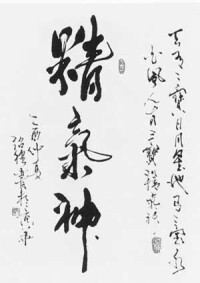 天有三寶日月星地有三寶水
火風人有三寶精氣神
精氣神
乙酉仲夏